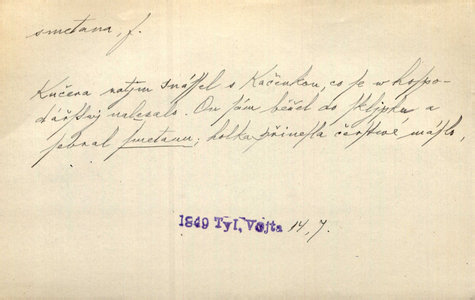 smetana, f.
Kučera zatím snášel s Kačenkou, co se w hospo-
dářstwj nalezalo. On sám běžel do sklípku a
sebral smetanu; holka přinesla čerstwé máslo,
1849 Tyl, Vojta 14, 7.